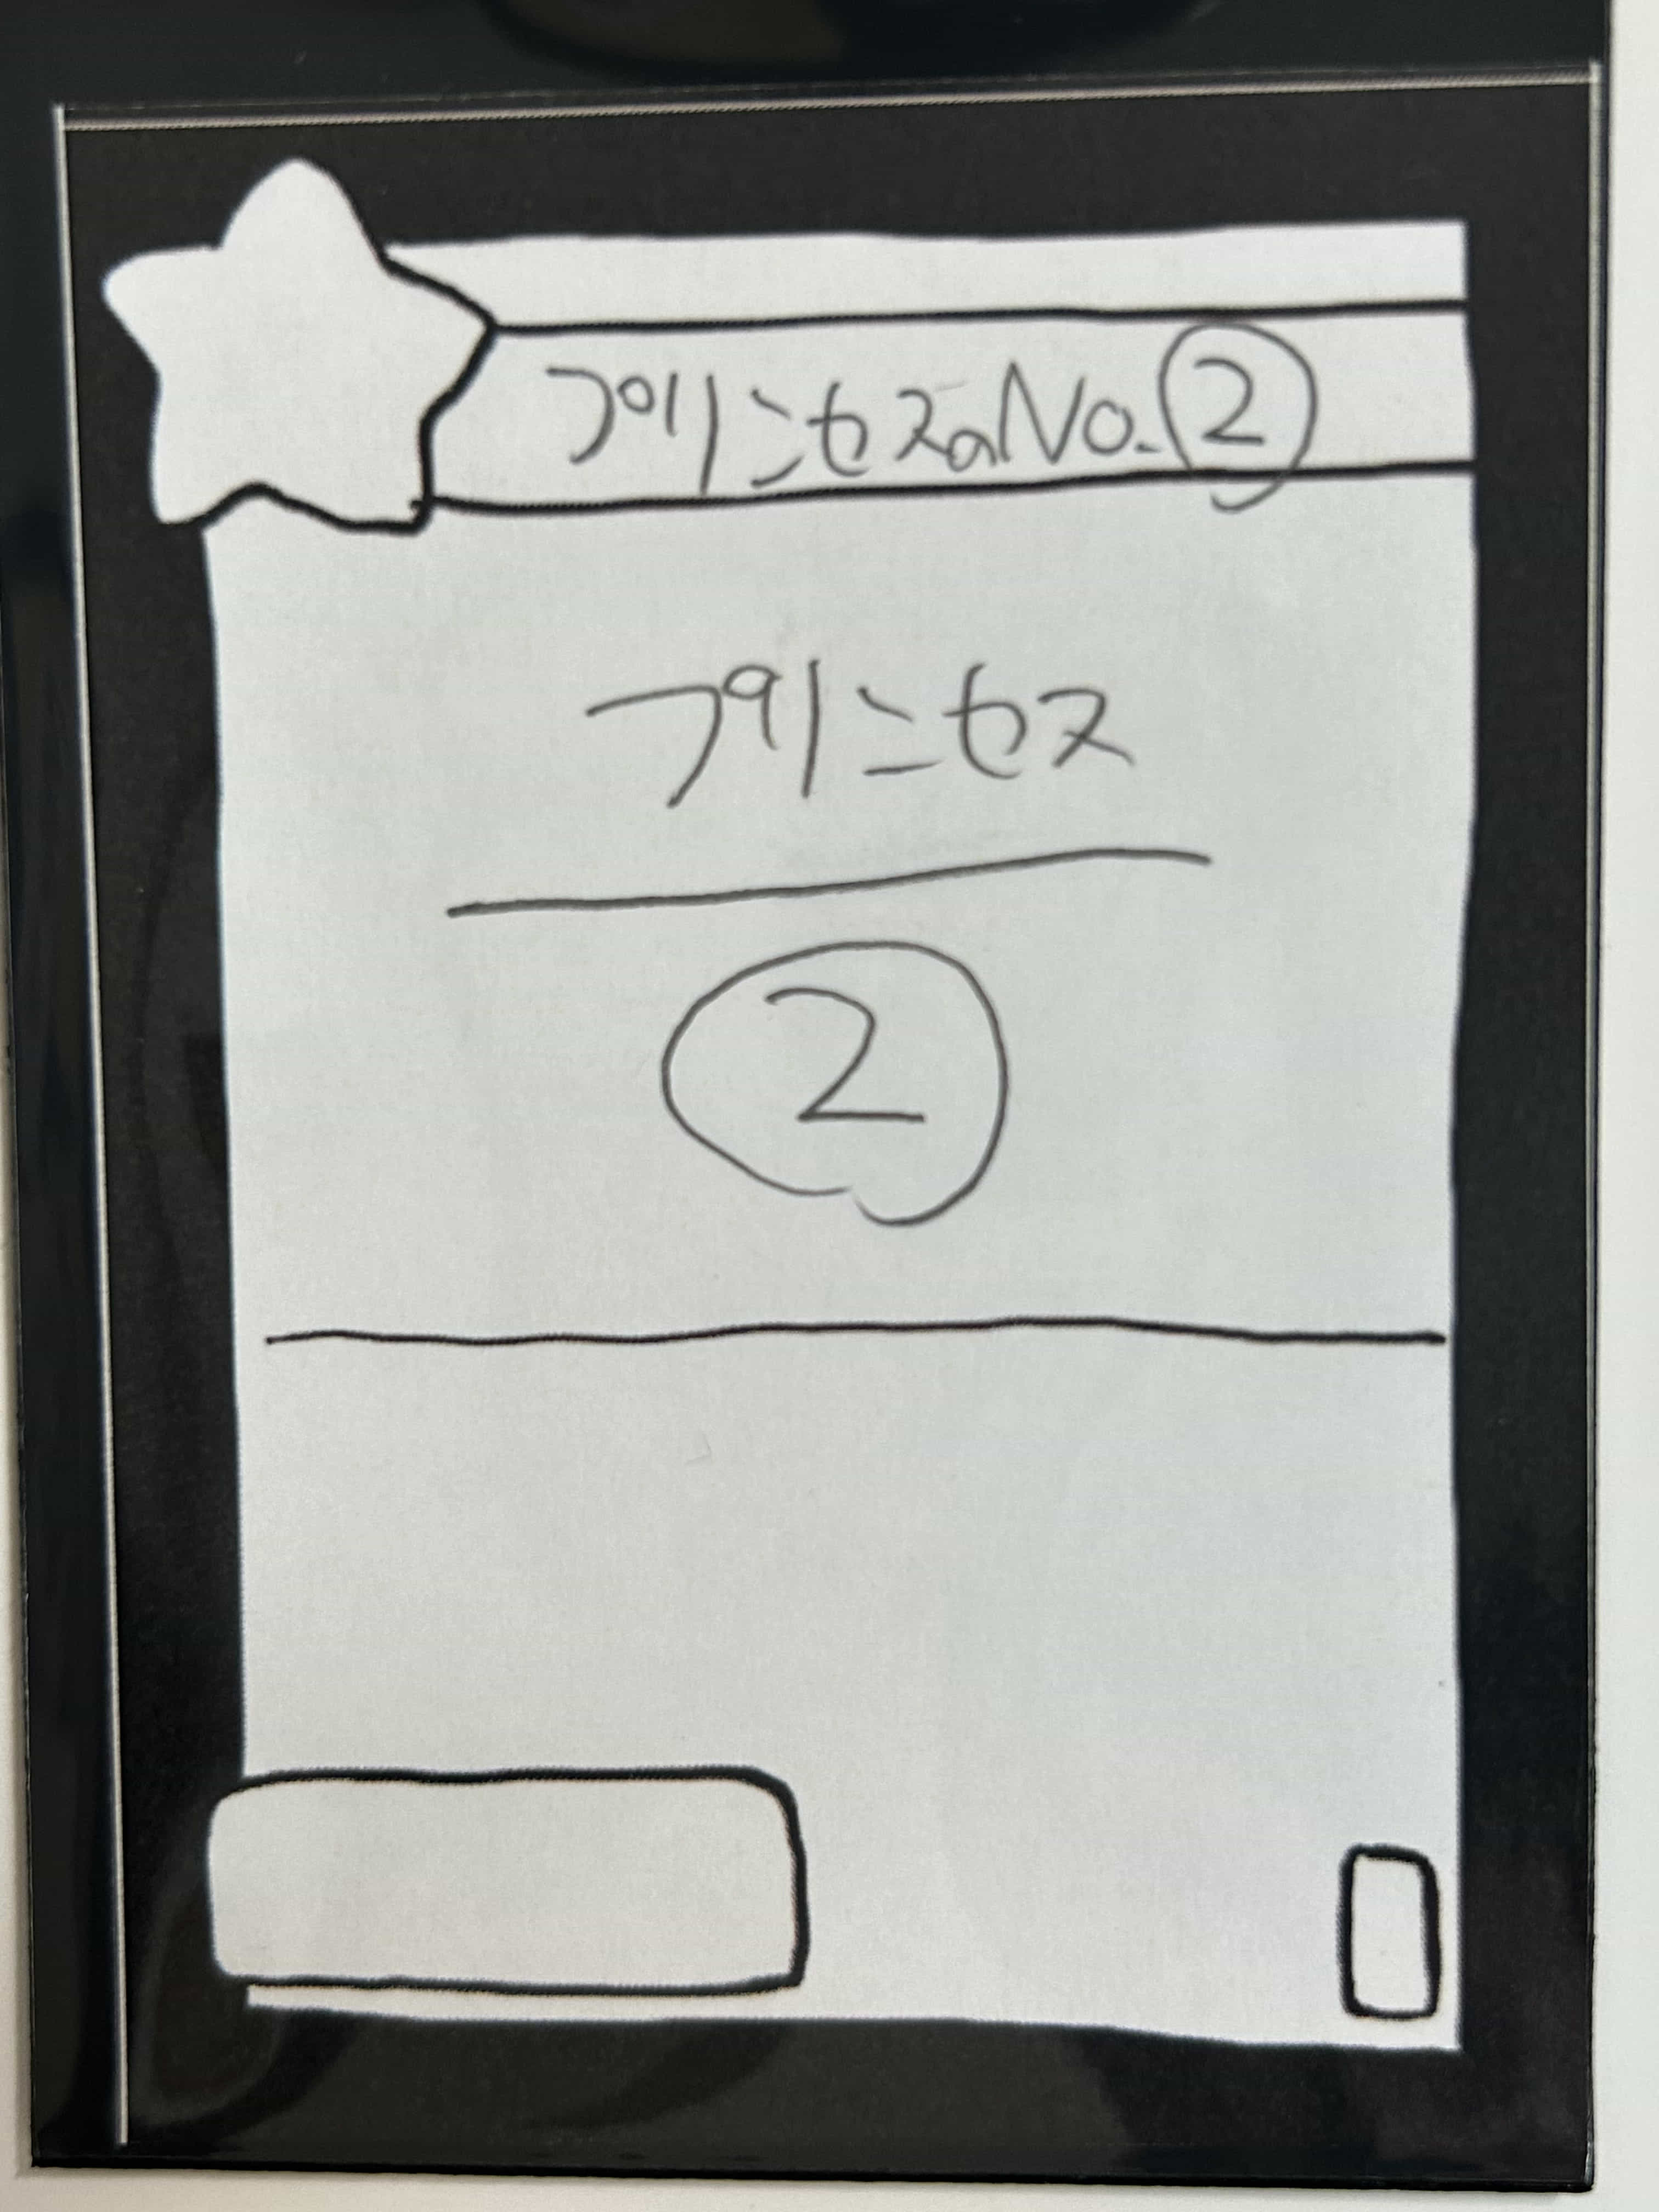 プリンセスのNo.②
プリンセス
②